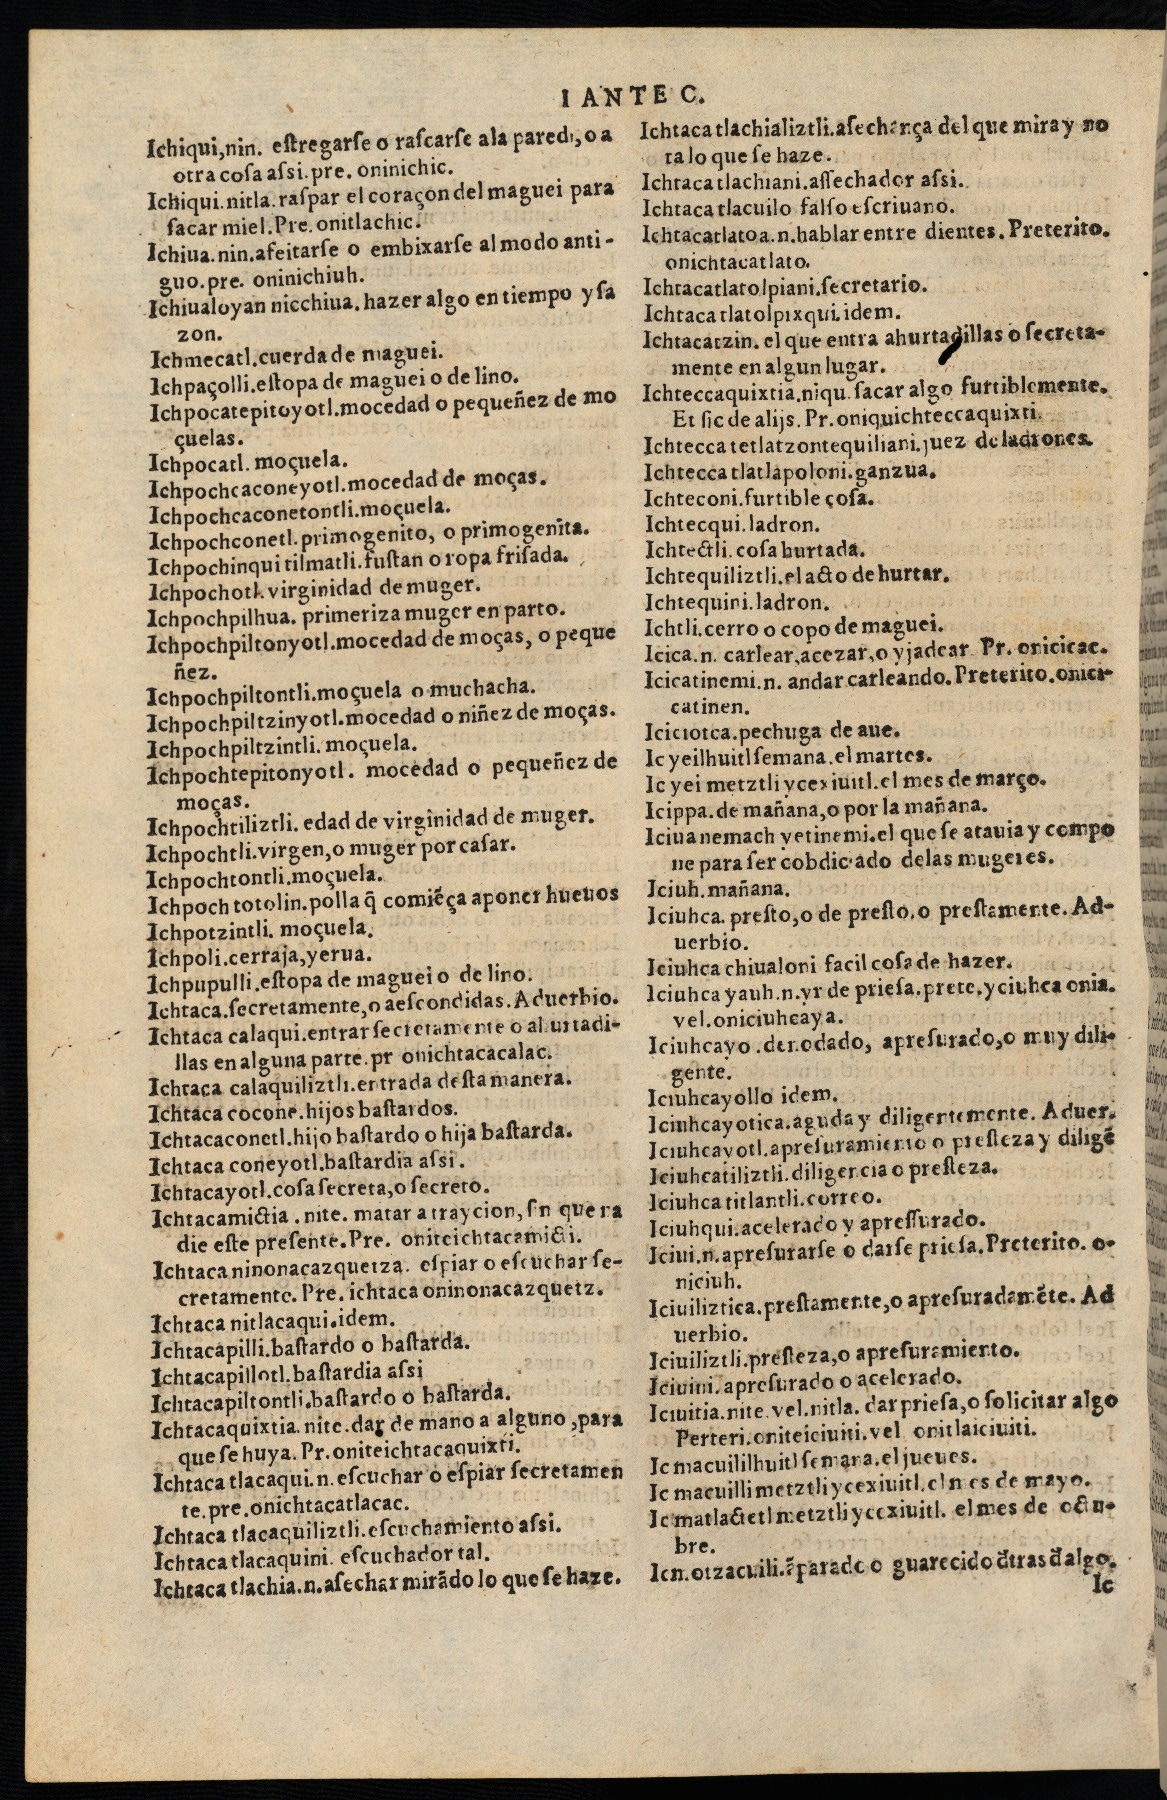 I ANTE C.
Ichiqui, nin. eſtregarſe o raſcarſe ala pared, o a
otra coſa aſsi. pre. oninichic.
Ichiqui. nitla. raſpar el coraçon del maguei para
ſacar miel. Pre. onitlachic.
Ichiua. nin. afeitarſe o embixarſe al modo anti-
guo. pre. oninichiuh.
Ichiualoyan nicchiua. hazer algo en tiempo y ſa
zon.
Ichmecatl. cuerda de maguei.
Ichpaçolli. eſtopa de maguei o de lino.
Ichpocatepitoyotl. mocedad o pequeñez de mo
çuelas.
Ichpocatl. moçuela.
Ichpochcaconeyotl. mocedad de moças.
Ichpochcaconetontli. moçuela.
Ichpochconetl. primogenito, o primogenita.
Ichpochinqui tilmatli. fuſtan o ropa friſada.
Ichpochotl. virginidad de muger.
Ichpochpilhua. primeriza muger en parto.
Ichpochpiltonyotl. mocedad de moças, o peque
ñez.
Ichpochpiltontli. moçuela o muchacha.
Ichpochpiltzinyotl. mocedad o niñez de moças.
Ichpochpiltzintli. moçuela.
Ichpochtepitonyotl. mocedad o pequeñez de
moças.
Ichpochtiliztli. edad de virginidad de muger.
Ichpochtli. virgen, o muger por caſar.
Ichpochtontli. moçuela.
Ichpoch totolin. polla q̃ comiẽça a poner hueuos
Ichpotzintli. moçuela.
Ichpoli. cerraja, yerua.
Ichpupulli. eſtopa de maguei o de lino.
Ichtaca. ſecretamente, o aeſcondidas. Aduerbio.
Ichtaca calaqui. entrar ſecretamente o ahurtadi-
llas en alguna parte. pr onichtacacalac.
Ichtaca calaquiliztli. entrada deſta manera.
Ichtaca cocone. hijos baſtardos.
Ichtacaconetl. hijo baſtardo o hija baſtarda.
Ichtaca coneyotl. baſtardia aſsi.
Ichtacayotl. coſa ſecreta, o ſecreto.
Ichtacamictia. nite. matar a traycion, ſin que na
die eſte preſente. Pre. oniteichtacamicti.
Ichtaca ninonacazquetza. eſpiar o eſcuchar ſe-
cretamente. Pre. ichtaca oninonacazquetz.
Ichtaca nitlacaqui. idem.
Ichtacapilli. baſtardo o baſtarda.
Ichtacapillotl. baſtardia aſsi
Ichtacapiltontli. baſtardo o baſtarda.
Ichtacaquixtia. nite. dar de mano a alguno, para
que ſe huya. Pr. oniteichtacaquixti.
Ichtaca tlacaqui. n. eſcuchar o eſpiar ſecretamen
te. pre. onichtacatlacac.
Ichtaca tlacaquiliztli. eſcuchamiento aſsi.
Ichtaca tlacaquini. eſcuchador tal.
Ichtaca tlachia. n. aſechar mirãdo lo que ſe haze.
Ichtaca tlachializtli. aſechança del que mira y no
ta lo que ſe haze.
Ichtaca tlachiani. aſſechador aſsi.
Ichtaca tlacuilo falſo eſcriuano.
Ichtacatlatoa. n. hablar entre dientes. Preterito.
onichtacatlato.
Ichtacatlatolpiani. ſecretario.
Ichtaca tlatolpixqui. idem.
Ichtacatzin. el que entra ahurtadillas o ſecreta-
mente en algun lugar.
Ichteccaquixtia. niqu. ſacar algo furtiblemente.
Et ſic de alijs. Pr. oniquichteccaquixti.
Ichtecca tetlatzontequiliani. juez de ladrones.
Ichtecca tlatlapoloni. ganzua.
Ichteconi. furtible çoſa.
Ichtecqui. ladron.
Ichtectli. coſa hurtada.
Ichtequiliztli. el acto de hurtar.
Ichtequini. ladron.
Ichtli. cerro o copo de maguei.
Icica. n. carlear, acezar, o yjadear. Pr. onicicac.
Icicatinemi. n. andar carleando. Preterito. onici-
catinen.
Iciciotca. pechuga de aue.
Ic yeilhuitl ſemana. el martes.
Ic yei metztli ycexiuitl. el mes de março.
Icippa. de mañana, o por la mañana.
Iciuanemach yetinemi. el que ſe atauia y compo
ne para ſer cobdiciado delas mugeres.
Iciuh. mañana.
Iciuhca. preſto, o de preſto, o preſtamente. Ad-
uerbio.
Iciuhca chiualoni facil coſa de hazer.
Iciuhca yauh. n. yr de prieſa. prete. yciuhca onia.
vel. oniciuhcaya.
Iciuhcayo. denodado, apreſurado, o muy dili-
gente.
Iciuhcayollo idem.
Iciuhcayotica. aguda y diligentemente. Aduer.
Iciuhcayotl. apreſuramiento o preſteza y diligẽ
Iciuhcatiliztli. diligencia o preſteza.
Iciuhca titlantli. correo.
Iciuhqui. acelerado y apreſſurado.
Iciui. n. apreſurarſe o darſe prieſa. Preterito. o-
niciuh.
Iciuiliztica. preſtamente, o apreſuradamẽte. Ad
uerbio.
Iciuiliztli. preſteza, o apreſuramiento.
Iciuini. apreſurado o acelerado.
Iciuitia. nite. vel. nitla. dar prieſa, o ſolicitar algo
Perteri. oniteiciuiti. vel onitlaiciuiti.
Ic macuililhuitl ſemana. el jueues.
Ic macuilli metztli ycexiuitl. el mes de mayo.
Ic matlactetl metztli ycexiuitl. el mes de octu-
bre.
Icn. otzacuili. ãparado o guarecido d̃tras d̃algo.
Ic